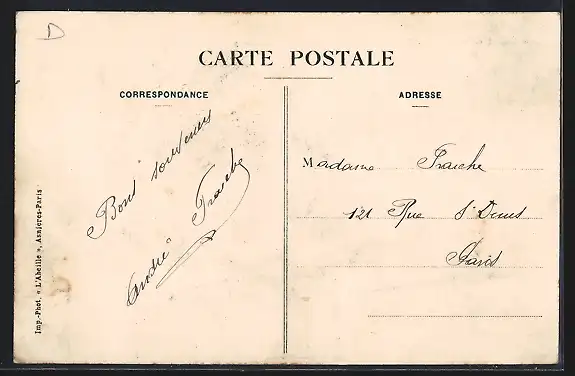 D
CARTE POSTALE
CORRESPONDANCE
ADRESSE
Bons souvenirs
André Fraiche
Madame Fraiche
121 Rue St Denis
Paris
Imp.-Phot. « L'Abeille », Asnières-Paris